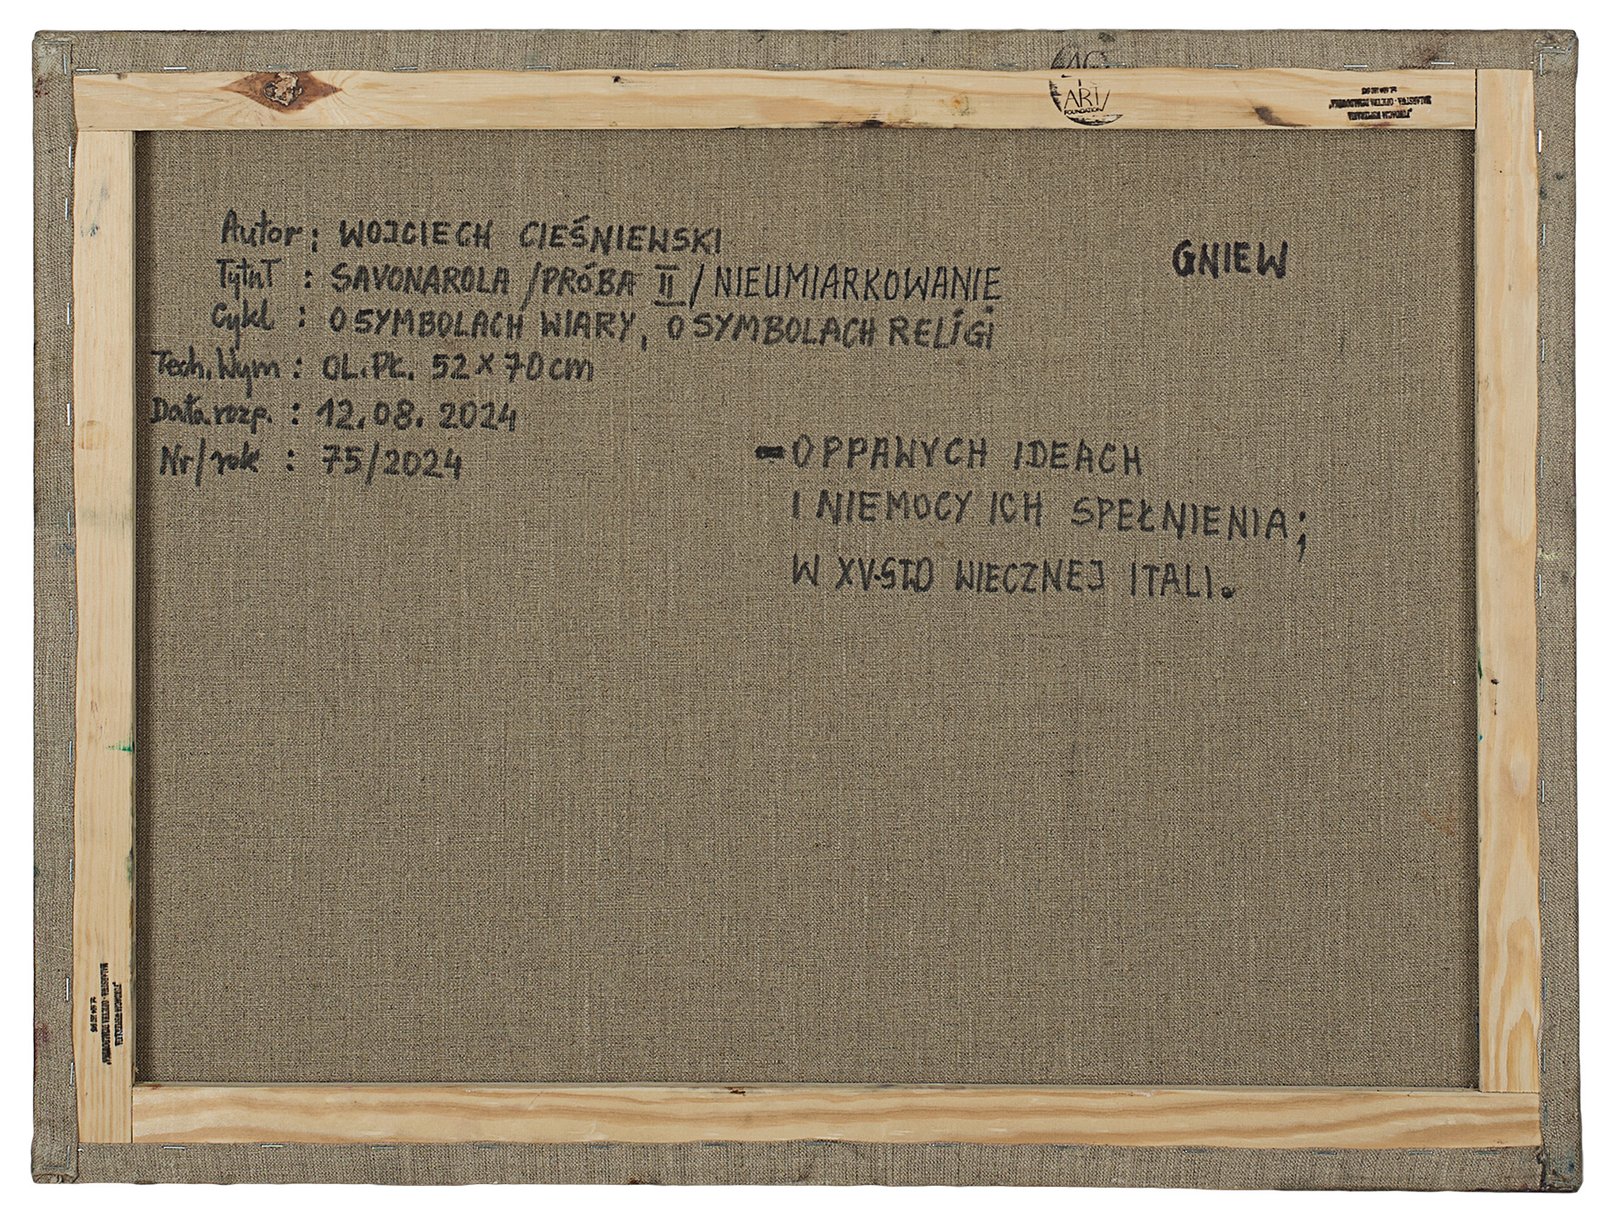 ART
FOUNDATION
Autor: WOJCIECH CIEŚNIEWSKI
GNIEW
Tytuł: SAVONAROLA /PRÓBA II/ NIEUMIARKOWANIE
Cykl: O SYMBOLACH WIARY, O SYMBOLACH RELIGI
Tech. Wym: OL.PŁ. 52 x 70 cm
Data rozp.: 12.08.2024
Nr/rok: 75/2024
- O PPAWYCH IDEACH
I NIEMOCY ICH SPEŁNIENIA;
W XV-STO WIECZNEJ ITALI.